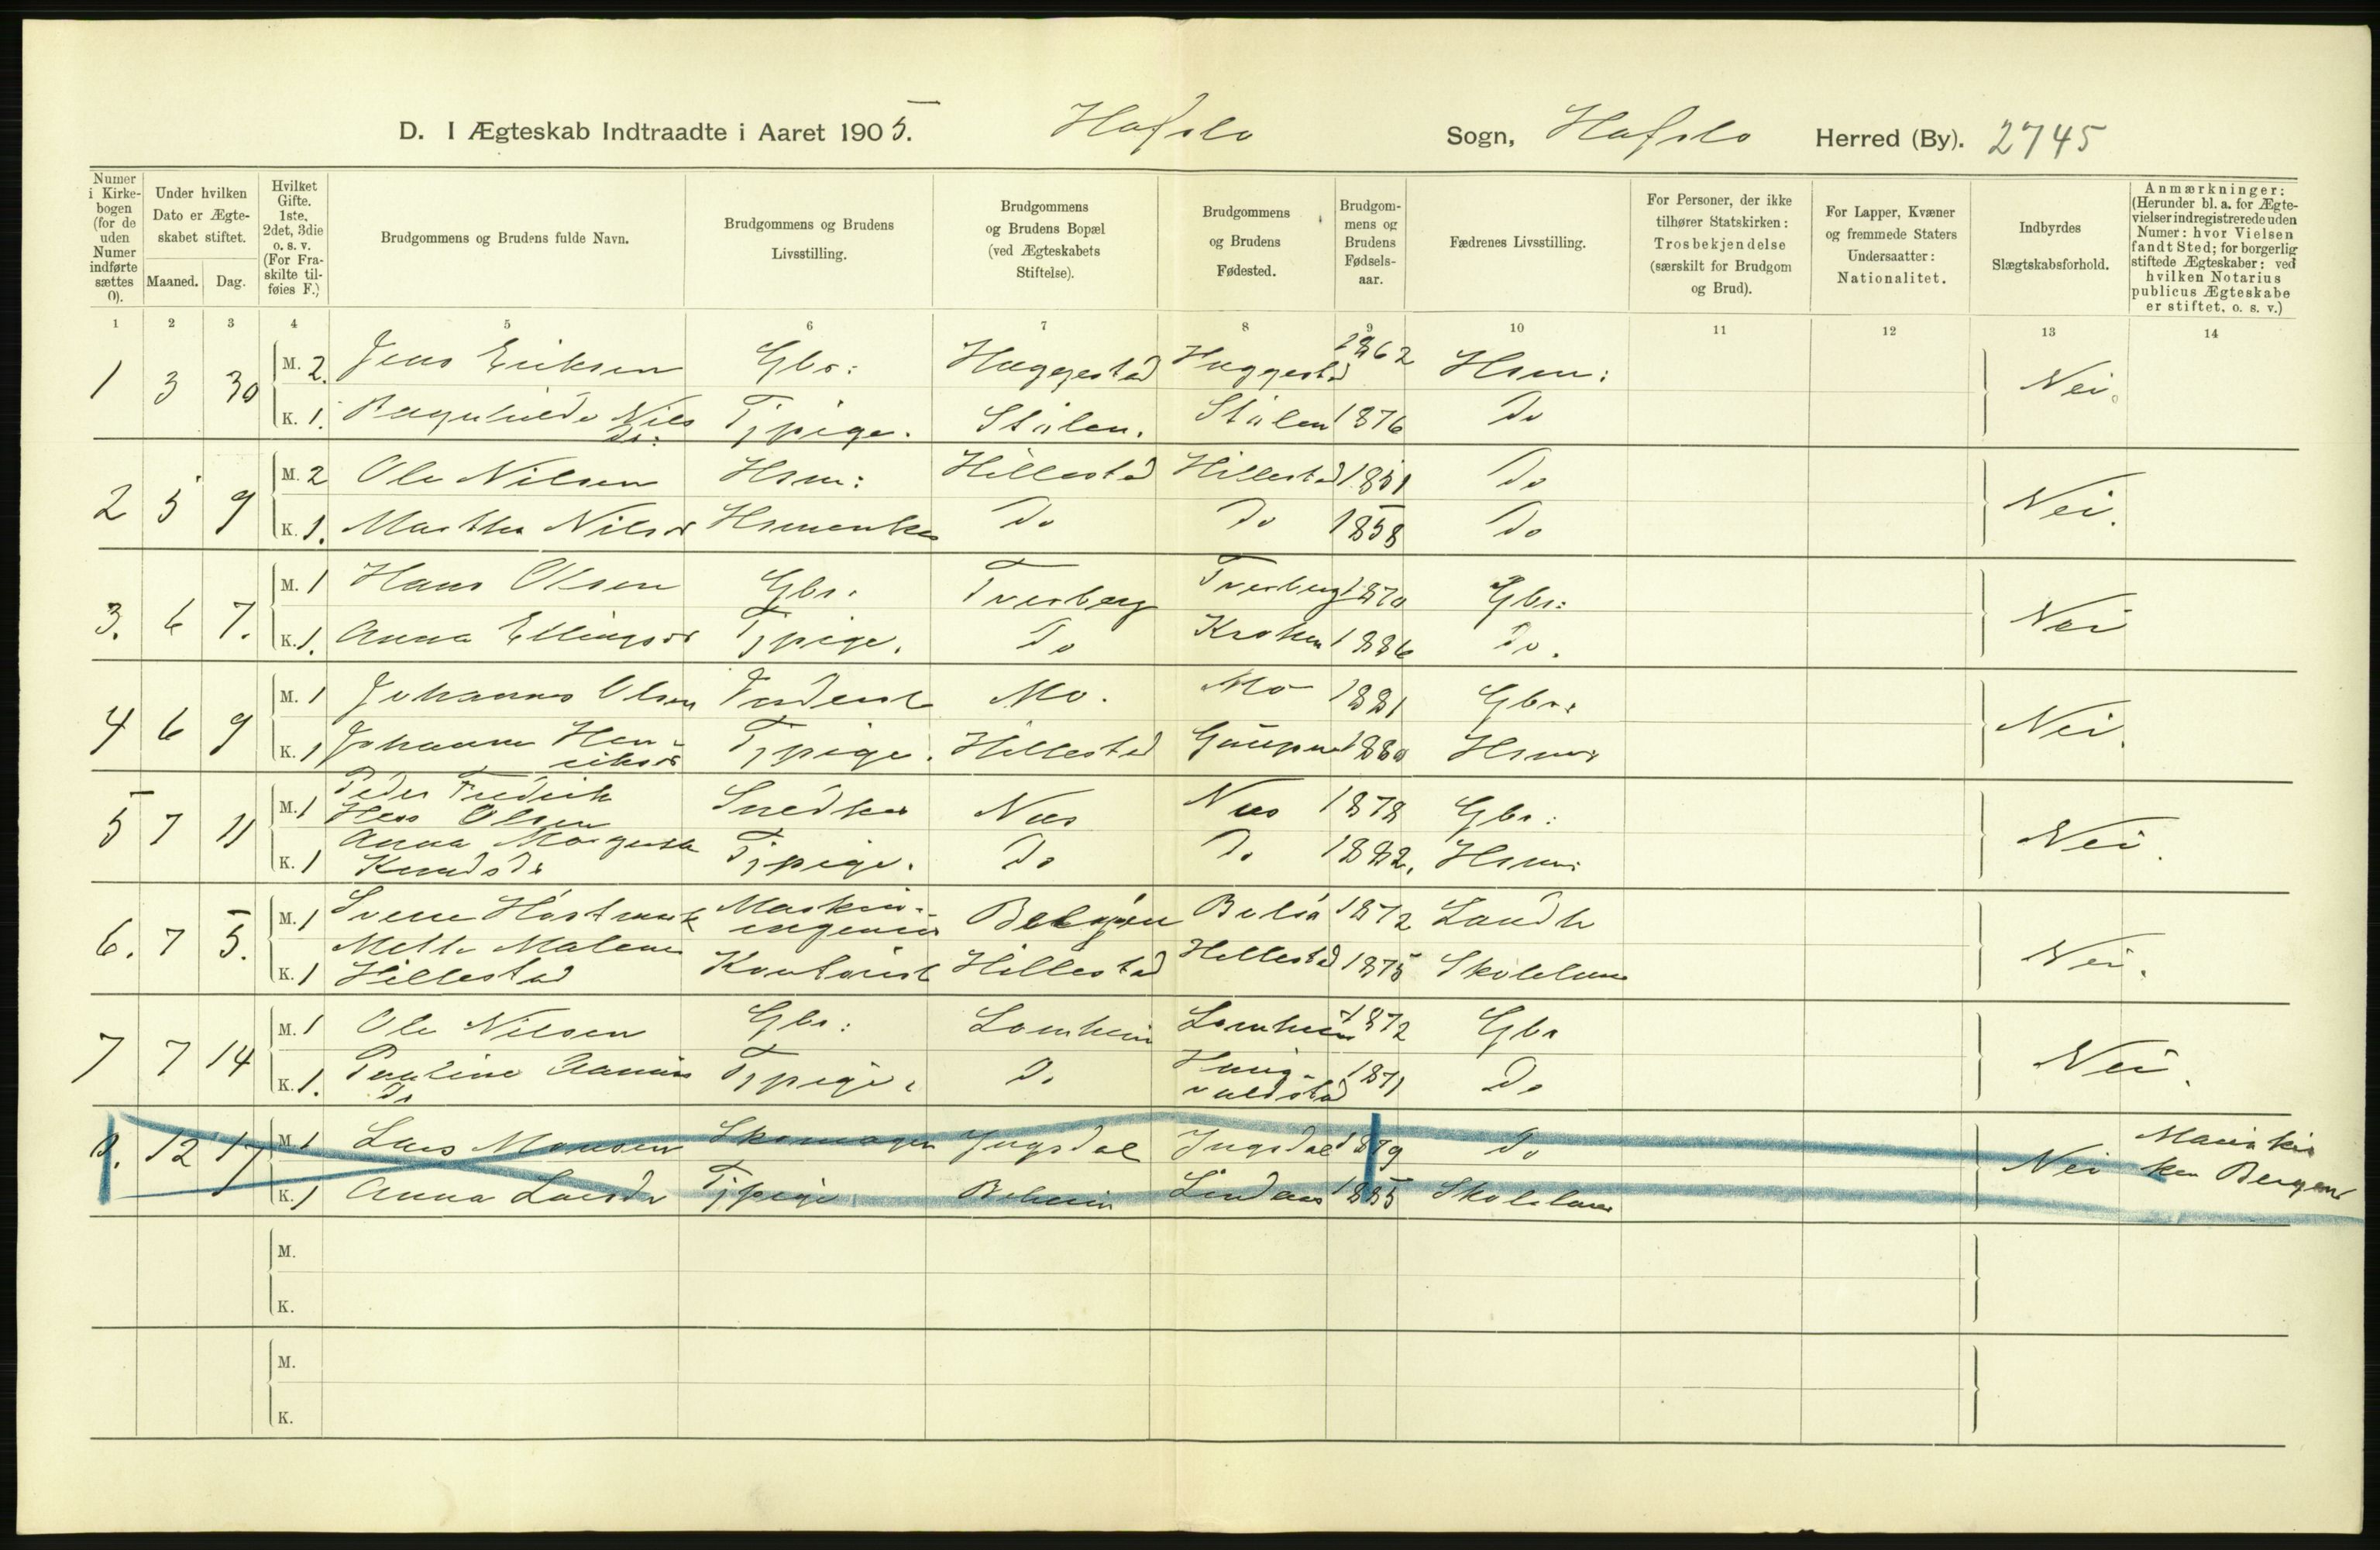 D. I Ægteskab Indtraadte i Aaret 1905. Hafslo Sogn, Hafslo Herred (By). 2745
Numer i Kirkebogen (for de uden Numer indførte sættes 0).
Under hvilken Dato er Ægteskabet stiftet.
Maaned. Dag.
Hvilket Gifte. 1ste, 2det, 3die o. s. v. (For Fraskilte tilføies F.)
Brudgommens og Brudens fulde Navn.
Brudgommens og Brudens Livsstilling.
Brudgommens og Brudens Bopæl (ved Ægteskabets Stiftelse).
Brudgommens og Brudens Fødested.
Brudgommens og Brudens Fødselsaar.
Fædrenes Livsstilling.
For Personer, der ikke tilhører Statskirken: Trosbekjendelse (særskilt for Brudgom og Brud).
For Lapper, Kvæner og fremmede Staters Undersaatter: Nationalitet.
Indbyrdes Slægtskabsforhold.
Anmærkninger: (Herunder bl. a. for Ægtevielser indregistrerede uden Numer: hvor Vielsen fandt Sted; for borgerlig stiftede Ægteskaber: ved hvilken Notarius publicus Ægteskabe er stiftet, o. s. v.)
1 2 3 4 5 6 7 8 9 10 11 12 13 14
1 3 30 M. 2. Jens Eriksen Gbr: Huggestad Huggestad 1862 Hsm: Nei.
K. 1. Ragnhilde Nils Dr: Tjpige. Stålen. Stålen 1876 Do
2 5 9 M. 2 Ole Nilsen Hsm: Hillestad Hillestad 1851 Do Nei.
K. 1. Martha Nilsdr Hsmenke Do Do 1858 Do
3. 6 7. M. 1 Hans Olsen Gbr. Tverberg Tverberg 1870 Gbr: Nei
K. 1. Anna Ellingsdr Tjpige. Do Kroken 1886 Do.
4 6 9 M. 1 Johannes Olsen Student Mo. Mo 1881 Gbr: Nei.
K. 1 Johanne Henriksdr Tjpige. Hillestad Gaupne 1880 Hsm:
5 7 11 M. 1 Peder Fredrik Hess Olsen Snedker Nes Nes 1878 Gbr: Nei.
K. 1 Anna Margreta Knudsdr Tjpige. Do Do 1882. Hsm:
6. 7 5. M. 1 Maskiningeniør Bergen 1872 Landh Nei.
K. 1 Mette Malene Hillestad Kontorist Hillestad Hillestad 1875 Skolelærer
7 7 14 M. 1 Ole Nilsen Gbr: Lomheim Lomheim 1872 Gbr Nei.
K. 1. Pauline Dr Tjpige. Do 1871 Do
12 17 M. 1 Lars Monsen Skomager Yngsdal Yngsdal 1879 Do Nei Mariakirken Bergen
K. 1 Anna Larsdr Tjpige Beheim Lindaas 1885 Skolelærer
M.
K.
M.
K.